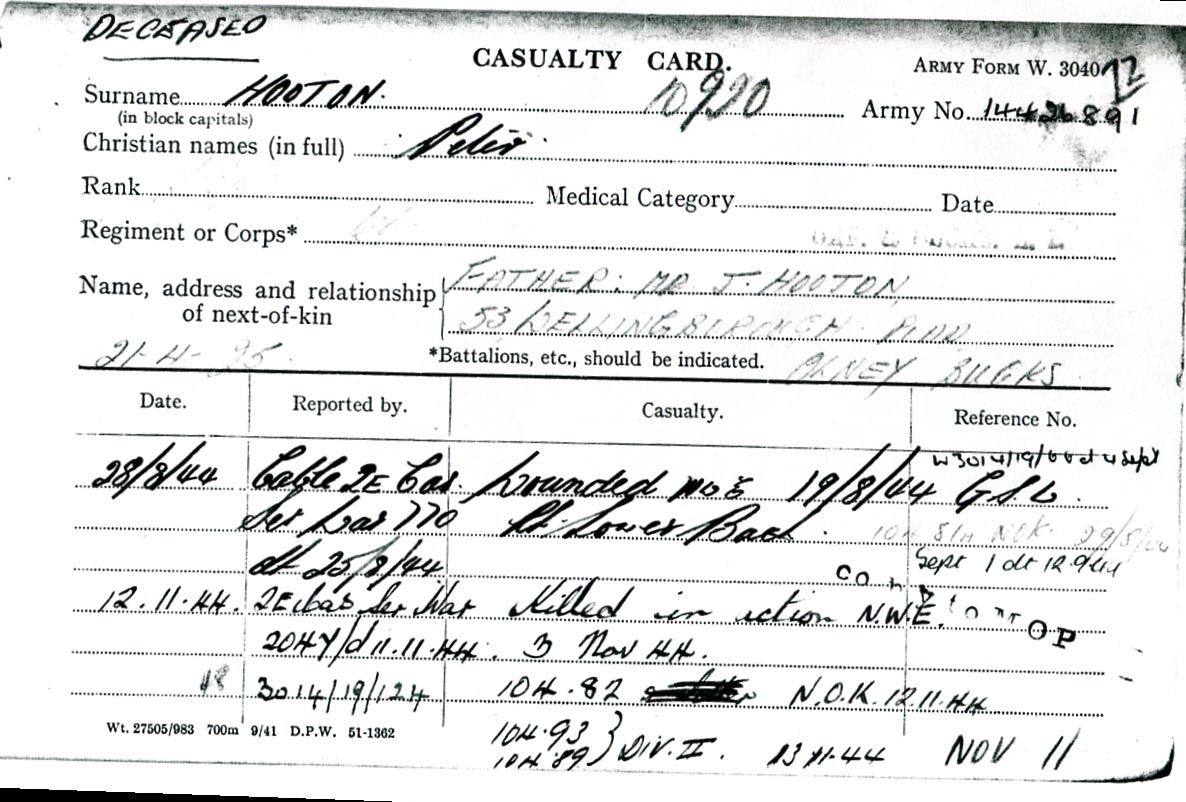 DECEASED
CASUALTY CARD.
ARMY FORM W. 3040
Surname HOOTON.
10920
Army No. 14426891
(in block capitals)
Christian names (in full) Peter
Rank Medical Category Date
Regiment or Corps*
Name, address and relationship of next-of-kin
FATHER: MR J. HOOTON
53 WELLINGBOROUGH
OLNEY BUCKS
21-4-25
*Battalions, etc., should be indicated.
Date. Reported by. Casualty. Reference No.
28/8/44 Cable 2E Cas. Wounded 19/8/44 G.S.W.
Ser War 770 Rt. Lower Back.
dt 25/8/44 Sept 1 dt 12.9.44
12.11.44. 2E Cas Ser War Killed in action N.W.E.
2047/d 11.11.44. 3 Nov 44.
3014/19/124 104.82 N.O.K. 12.11.44
Wt. 27505/983 700m 9/41 D.P.W. 51-1362
104.93
104.89 } DIV. II. 13 11-44 NOV 11